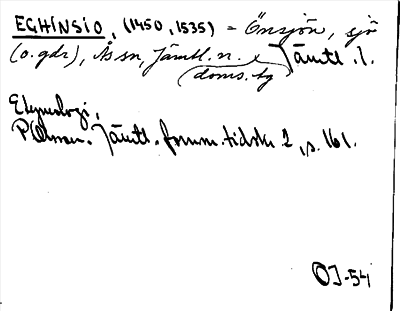 EGHINSIO, (1450, 1535) = Önsjön, sjö
(o. gdr), Åssn, Jämtl. n. Jämtl. l.
doms. hg
Etymologi,
P Olsson. Jämtl. fornm. tidskr. 2, s. 161.
OJ-54